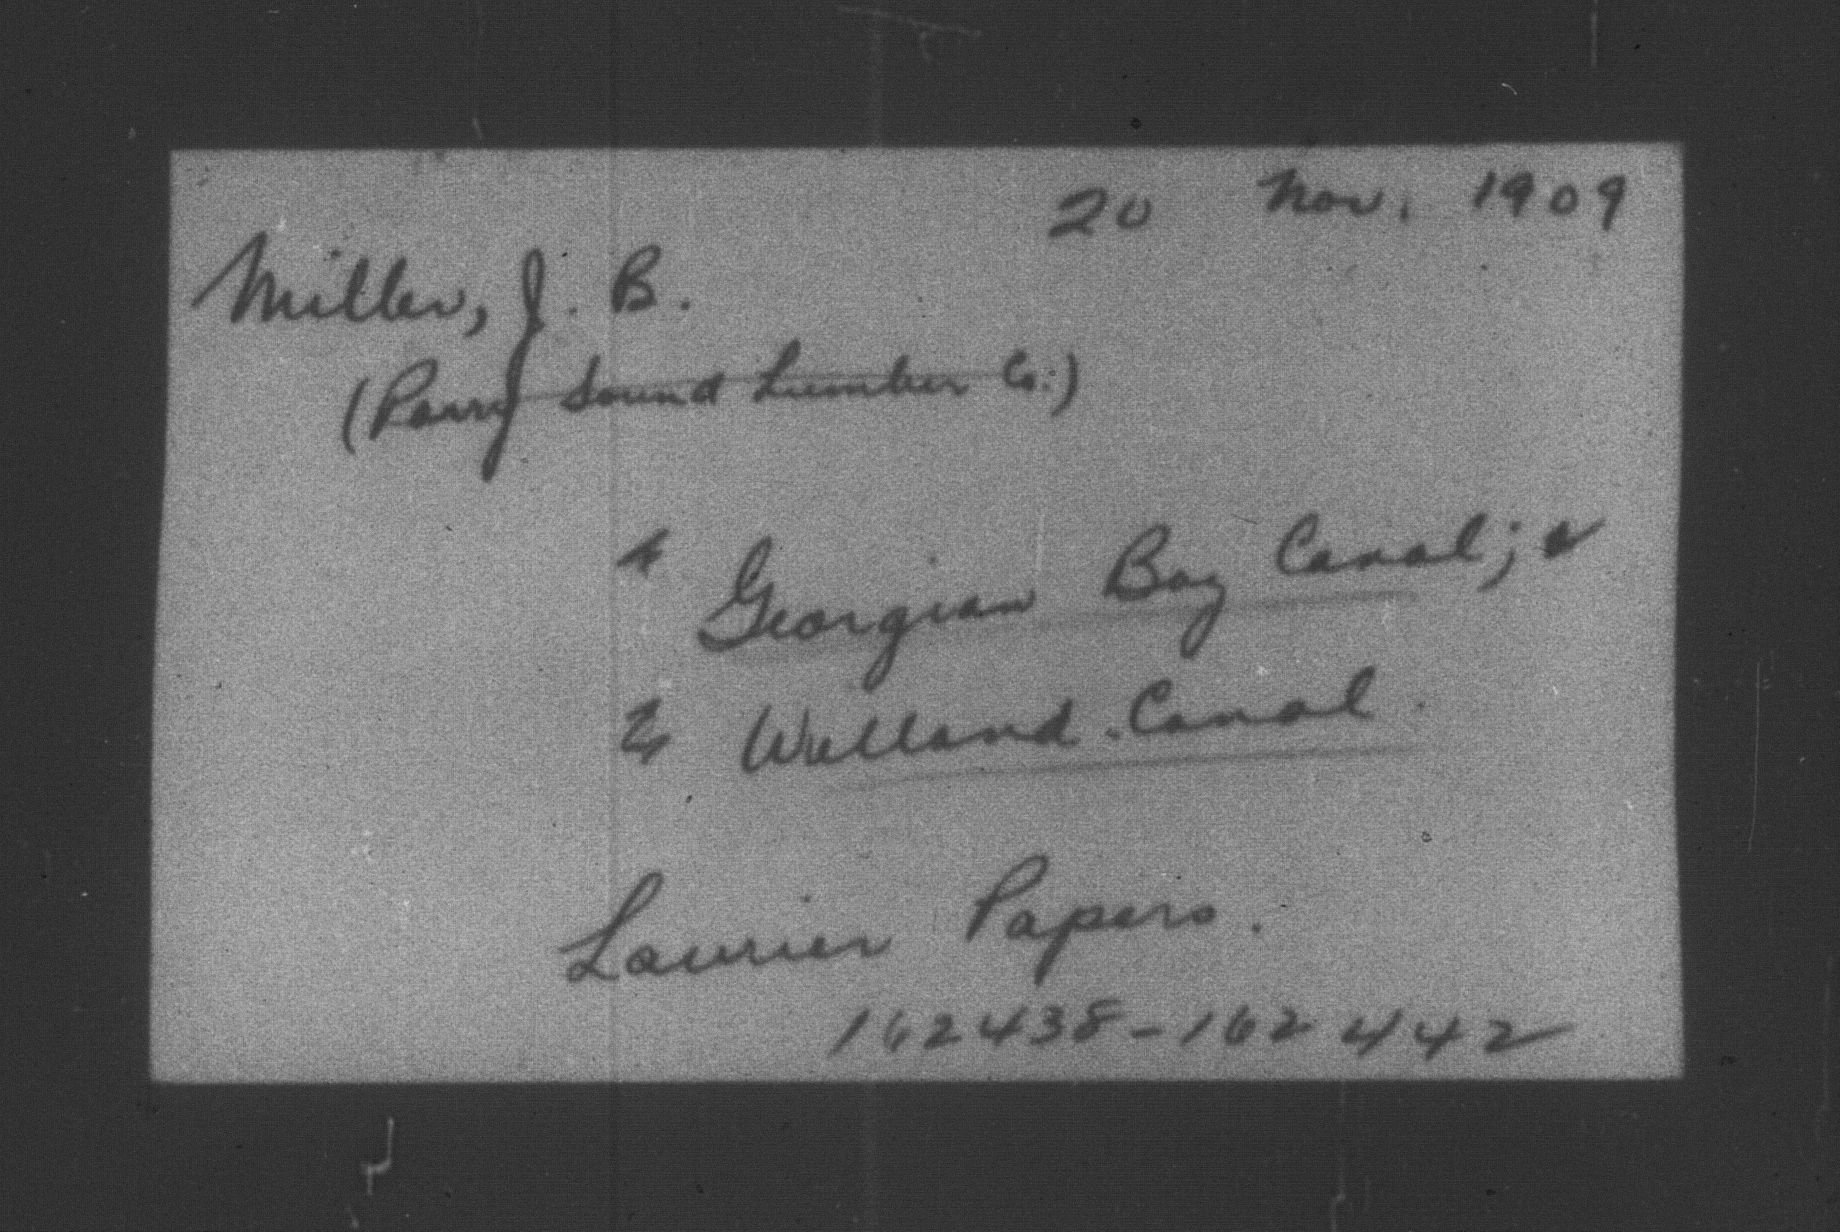 20 Nov. 1909
Miller, J. B.
(Parry Sound Lumber Co.)
Georgian Bay Canal; &
Welland Canal.
Laurier Papers.
162438-162442